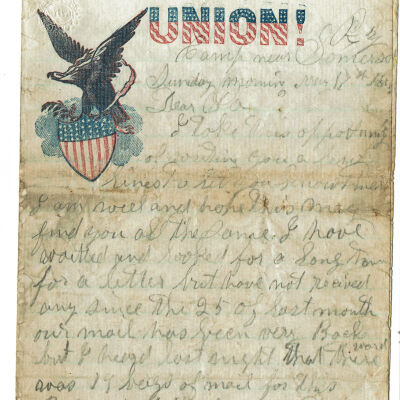 UNION!
Camp near Somerset
Sunday morning May 17th 186
Dear
I take this oppotunity
of writing you a few
lines to let you know that
I am well and hope this may
find you all the same. I have
waited and looked for a long time
for a letter but have not received
any since the 25 of last month
our mail has been very Backward
but I heard last night that there
was 19 begs of mail for this